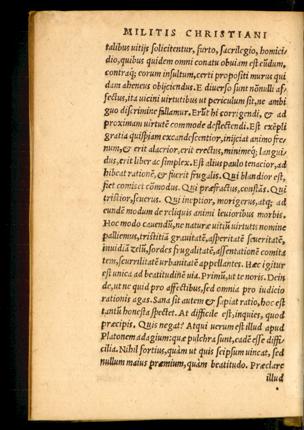 MILITIS CHRISTIANI
talibus uitijs solicitentur, furto, sacrilegio, homici
dio, quibus quidem omni conatu obuiam est eūdum,
contraq; eorum insultum, certi propositi murus qui
dam aheneus obijciendus. E diuerso sunt nōnulli af=
fectus, ita uicini uirtutibus ut periculum sit, ne ambi
guo discrimine fallamur. Erūt hi corrigendi, & ad
proximam uirtutē commode deflectendi. Est exēpli
gratia quispiam excandescentior, inijciat animo fre
num, & erit alacrior, erit erectus, minimeq; langui=
dus, erit liber ac simplex. Est alius paulo tenacior, ad
hibeat rationē, & fuerit frugalis. Qui blandior est,
fiet comiset cōmodus. Qui præfractus, constās. Qui
tristior, seuerus. Qui ineptior, morigerus, atq; ad
eundē modum de reliquis animi leuioribus morbis.
Hoc modo cauendū, ne naturæ uitiū uirtutis nomine
palliemus, tristitiā grauitatē, asperitatē seueritatē,
inuidiā zelū, sordes frugalitatē, assentationē comita
tem, scurrilitatē urbanitatē appellantes. Hæc igitur
est unica ad beatitudinē uia. Primū, ut te noris. Dein
de, ut ne quid pro affectibus, sed omnia pro iudicio
rationis agas. Sana sit autem & sapiat ratio, hoc est
tantū honesta spectet. At difficile est, inquies, quod
præcipis. Quis negat? Atqui uerum est illud apud
Platonem adagium: quæ pulchra sunt, eadē esse diffi=
cilia. Nihil fortius, quàm ut quis seipsum uincat, sed
nullum maius præmium, quàm beatitudo. Præclare
illud